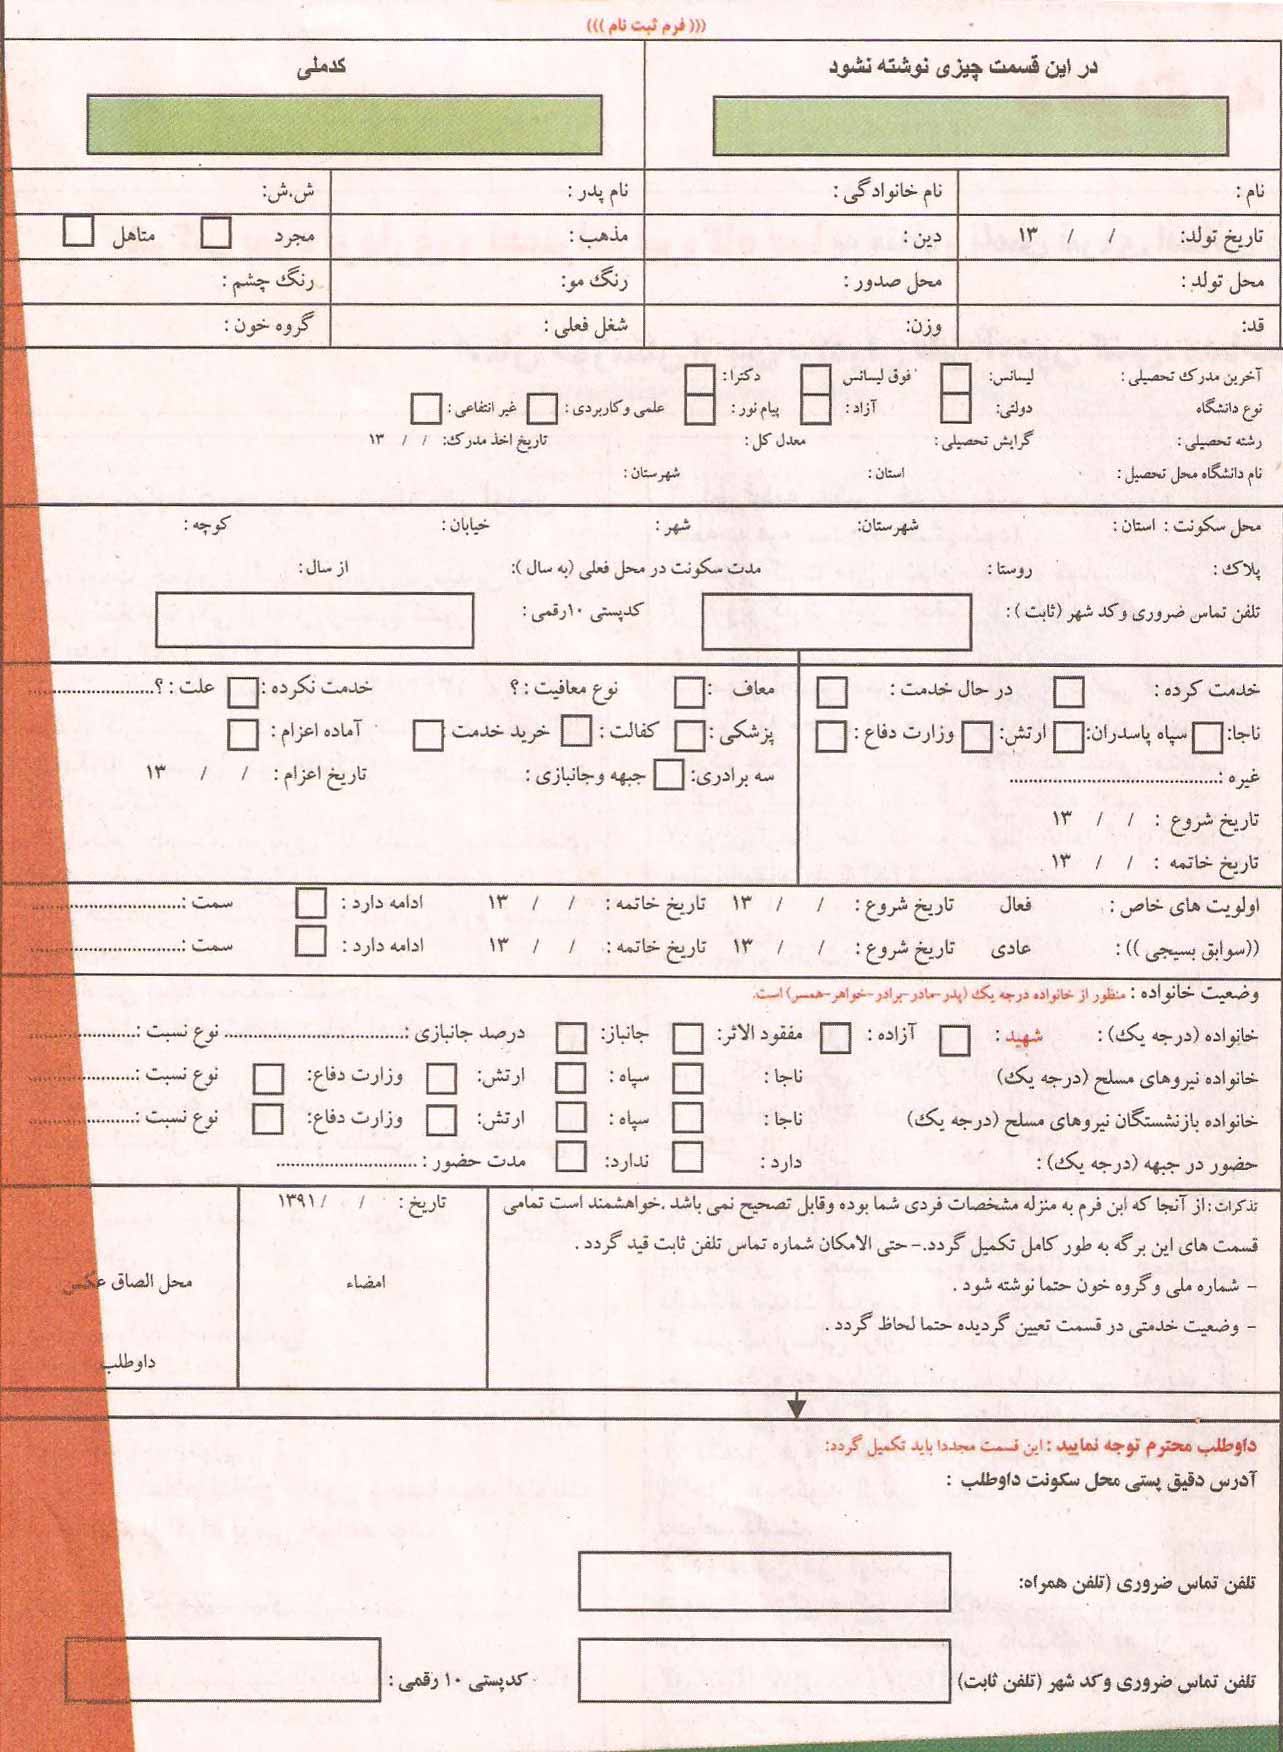 ((( فرم ثبت نام )))
در این قسمت چیزی نوشته نشود
کدملی
نام : نام خانوادگی : نام پدر : ش.ش:
تاریخ تولد: / / ۱۳ دین : مذهب : مجرد متاهل
محل تولد : محل صدور : رنگ مو: رنگ چشم :
قد: وزن: شغل فعلی : گروه خون :
آخرین مدرک تحصیلی : لیسانس: فوق لیسانس دکترا :
نوع دانشگاه دولتی: آزاد : پیام نور : علمی وکاربردی : غیر انتفاعی :
رشته تحصیلی : گرایش تحصیلی : معدل کل : تاریخ اخذ مدرک: / / ۱۳
نام دانشگاه محل تحصیل : استان : شهرستان :
محل سکونت : استان : شهرستان: شهر : خیابان : کوچه :
پلاک : روستا : مدت سکونت در محل فعلی (به سال ): از سال :
تلفن تماس ضروری وکد شهر (ثابت ) : کدپستی ۱۰رقمی :
خدمت کرده : در حال خدمت : معاف : نوع معافیت : ؟ خدمت نکرده : علت : ؟........................
ناجا: سپاه پاسدران: ارتش: وزارت دفاع : پزشکی : کفالت : خرید خدمت : آماده اعزام :
غیره :........................................ سه برادری: جبهه وجانبازی : تاریخ اعزام : / / ۱۳
تاریخ شروع : / / ۱۳
تاریخ خاتمه : / / ۱۳
اولویت های خاص : فعال تاریخ شروع : / / ۱۳ تاریخ خاتمه : / / ۱۳ ادامه دارد : سمت :............................
((سوابق بسیجی )) : عادی تاریخ شروع : / / ۱۳ تاریخ خاتمه : / / ۱۳ ادامه دارد : سمت :............................
وضعیت خانواده : منظور از خانواده درجه یک (پدر-مادر-برادر-خواهر-همسر) است.
خانواده (درجه یک): شهید : آزاده : مفقود الاثر: جانباز: درصد جانبازی :.................................. نوع نسبت :....................
خانواده نیروهای مسلح (درجه یک) ناجا : سپاه : ارتش: وزارت دفاع: نوع نسبت :....................
خانواده بازنشستگان نیروهای مسلح (درجه یک) ناجا : سپاه : ارتش: وزارت دفاع: نوع نسبت :....................
حضور در جبهه (درجه یک): دارد : ندارد: مدت حضور :...........................
تذکرات : از آنجا که این فرم به منزله مشخصات فردی شما بوده وقابل تصحیح نمی باشد .خواهشمند است تمامی
قسمت های این برگه به طور کامل تکمیل گردد.- حتی الامکان شماره تماس تلفن ثابت قید گردد .
- شماره ملی وگروه خون حتما نوشته شود .
- وضعیت خدمتی در قسمت تعیین گردیده حتما لحاظ گردد .
تاریخ : / / ۱۳۹۱
امضاء
محل الصاق عکس
داوطلب
داوطلب محترم توجه نمایید : این قسمت مجددا باید تکمیل گردد:
آدرس دقیق پستی محل سکونت داوطلب :
تلفن تماس ضروری (تلفن همراه:
تلفن تماس ضروری وکد شهر (تلفن ثابت) کدپستی ۱۰ رقمی :